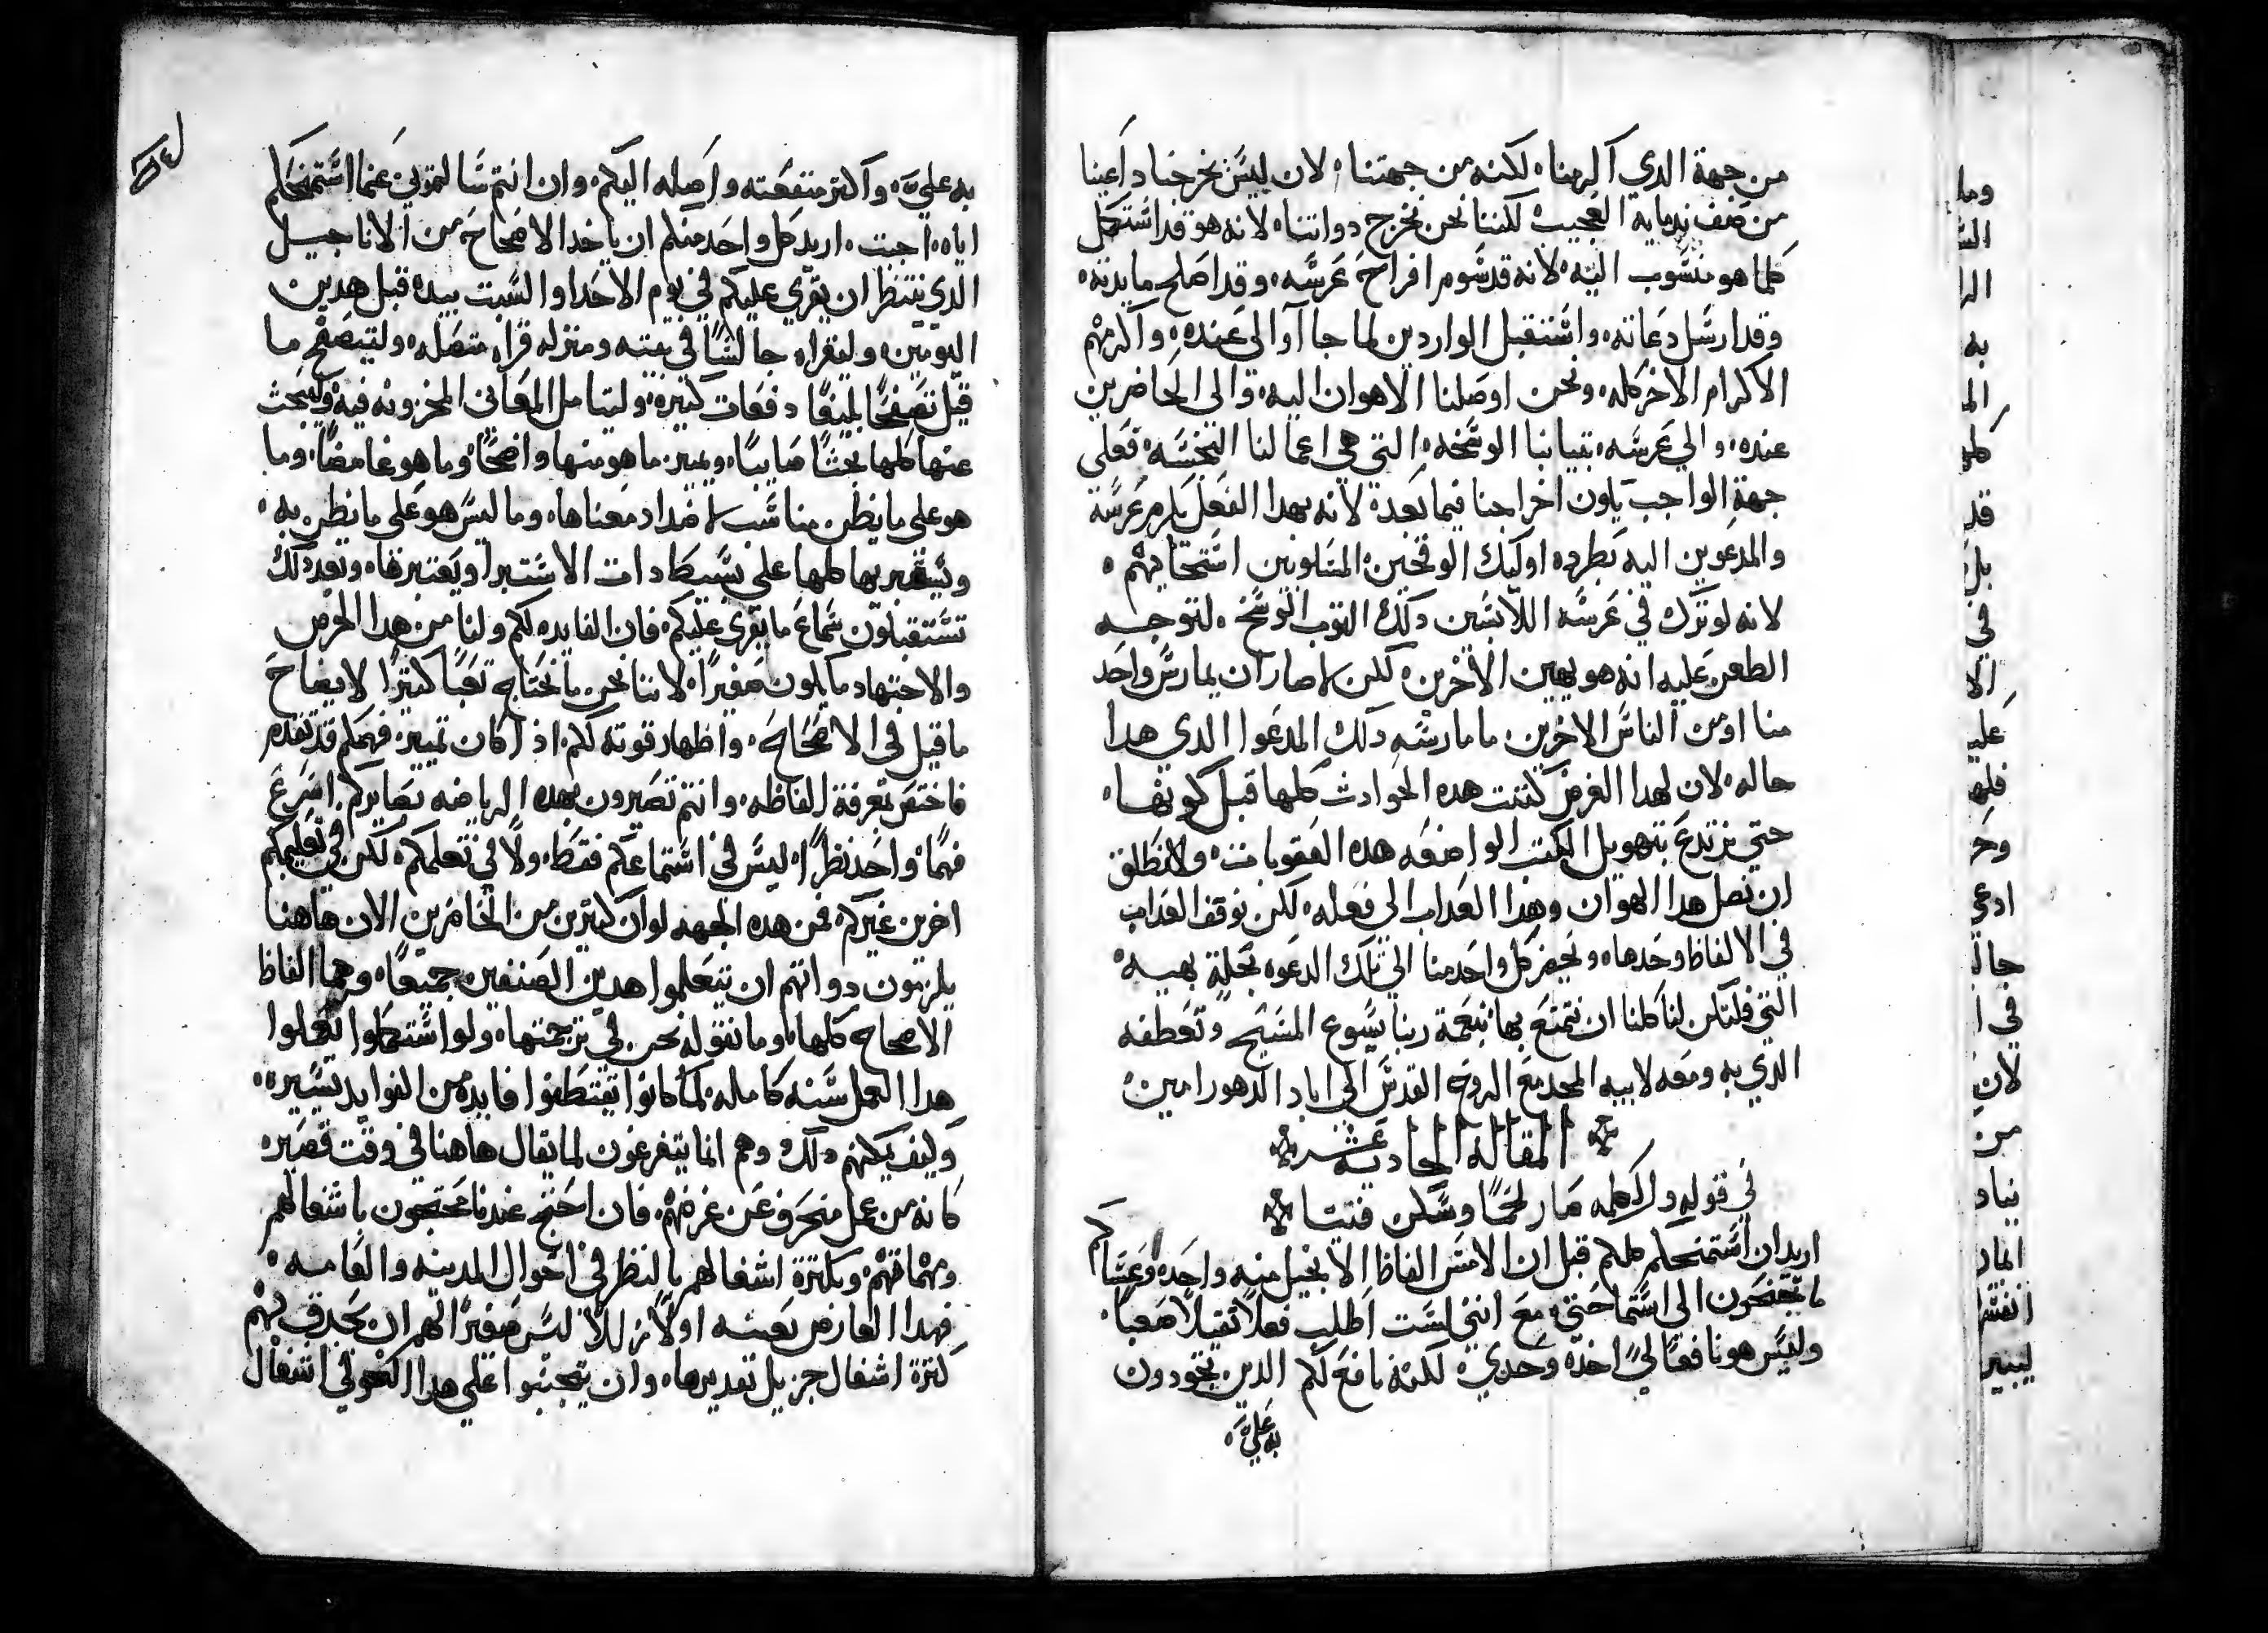 من جهة الدي اكرمنا، لكنه من جهتنا، لان ليس يخرجنا داعينا
من صف ندمايه العجيب لكننا نحن نخرج دواتنا، لانه هو قد استكمل
كلما هو منسوب اليه، لانه قد شوم افراح عرسه، وقد اصلح مايدته،
وقد ارسل دعاته، واستقبل الواردين لما جاآوا الى عنده، واكرمهم
الاكرام الاخر كله، ونحن اوصلنا الاهوان اليه، والى الحاضرين
عنده، والي عرسه، بتيابنا الوسخه، التي هي اعمالنا النجسه، فعلى
جهة الواجب يكون اخراجنا فيما بعد، لانه بهدا الفعل يكرم عرسه
والمدعوين اليه بطرده اوليك الوقحين، المتلونين استحقايهم،
لانه لو ترك في عرسه اللابسين دلك التوب الوسخ، لتوجه
الطعن عليه انه هو يهين الاخرين، لكن لا صار ان يمارس واحد
منا او من الناس الاخرين، ما مارسه دلك المدعوا الدي هدا
حاله، لان لهدا الغرض كتبت هده الحوادث كلها قبل كونها،
حتي نرتدع بتهويل الكتب الواصفه هده العقوبات، ولا نطلق
ان تصل هدا الهوان وهدا العداب الى فعله، لكن نوقف العداب
في الالفاظ وحدها، ويحضر كل واحد منا الي تلك الدعوه بحلة بهيه،
التي فلتكن لنا كلنا ان نتمتع بها بنعمة ربنا يسوع المسيح وتعطفه
الدي به ومعه لابيه المجد مع الروح القدس الي اباد الدهور امين
المقالة الحادية عشر
في قوله والكلمه صار لحما وسكن فينا
اريد ان استمنحكم كلكم قبل ان الامس الفاظ الانجيل منه واحده وعساكم
ما تجنحون الى استماحتي، مع انني لست اطلب فعلا تقيلا صعبا،
وليس هو نافعا لي اخده وحدي، لكنه نافع لكم الدين تجودون
به علي،
به علي، واكتر منفعته واصله اليكم، وان انتم شالتموني عنما استمنحكم
اياه، اجبت، اريد كل واحد منكم ان ياخد الاصحاح من الاناجيل
الدي ينتظر ان يقري عليكم في يوم الاحد او السبت بيده قبل هدين
اليومين، وليقراه جالسا في بيته ومنزله قراه متصله، وليتصفح ما
قيل تصفحا بليغا دفعات كتيره، وليتامل المعاني المخزونه فيه، وليبحث
عنها كلها بحثا صايبا، ويميز ما هو منها واضحا، وما هو غامضا، وما
هو على ما يظن مناسب لاضداد معناها، وما ليس هو على ما يظن به،
كلها على دات الاستبرا ويعتبرها، وبعد دلك
تستقبلون سماع ما يقري عليكم، فان الفايده لكم ولنا من هدا الحرص
والاجتهاد ما يكون صغيرا، لاننا نحن ما نحتاج تعبا كتيرا لايضاح
ما قيل في الاصحاح، واظهار قوته لكم، اذ كان تمييز فهمكم قد تقدم
فاختص بمعرفة الفاظه، وانتم تصيرون بهده الرياضه بصايركم اسرع
فهما، واحد نظرا، ليس في استماعكم فقط، ولا في تعلمكم، لكن في تعليمكم
اخرين غيركم، فمن هده الجهه لو ان كتيرين من الحاضرين الان هاهنا
يلزمون دواتهم ان يتعلموا هدين الصنفين جميعا، وهما الفاظ
الاصحاح كلها، وما نقوله نحن في ترجمتها، ولو استكملوا
هدا العمل سنه كامله، لما كانوا يقتطفوا فايده من الفوايد يسيره،
وكيف يمكنهم دلك وهم انما يتفرغون لما يقال هاهنا في وقت قصير،
كانه من عمل منحرف عن غرضهم، فان احتج عندنا محتجون باشغالهم
ومهماتهم، وبكترة اشغالهم بالنظر في احوال المدينه والعامه،
فهدا العارض بعينه اولا ليس صغيرا لهم ان يحدق بهم
كترة اشغال جزيل تقديرها، وان على هدا النحو في اشغال